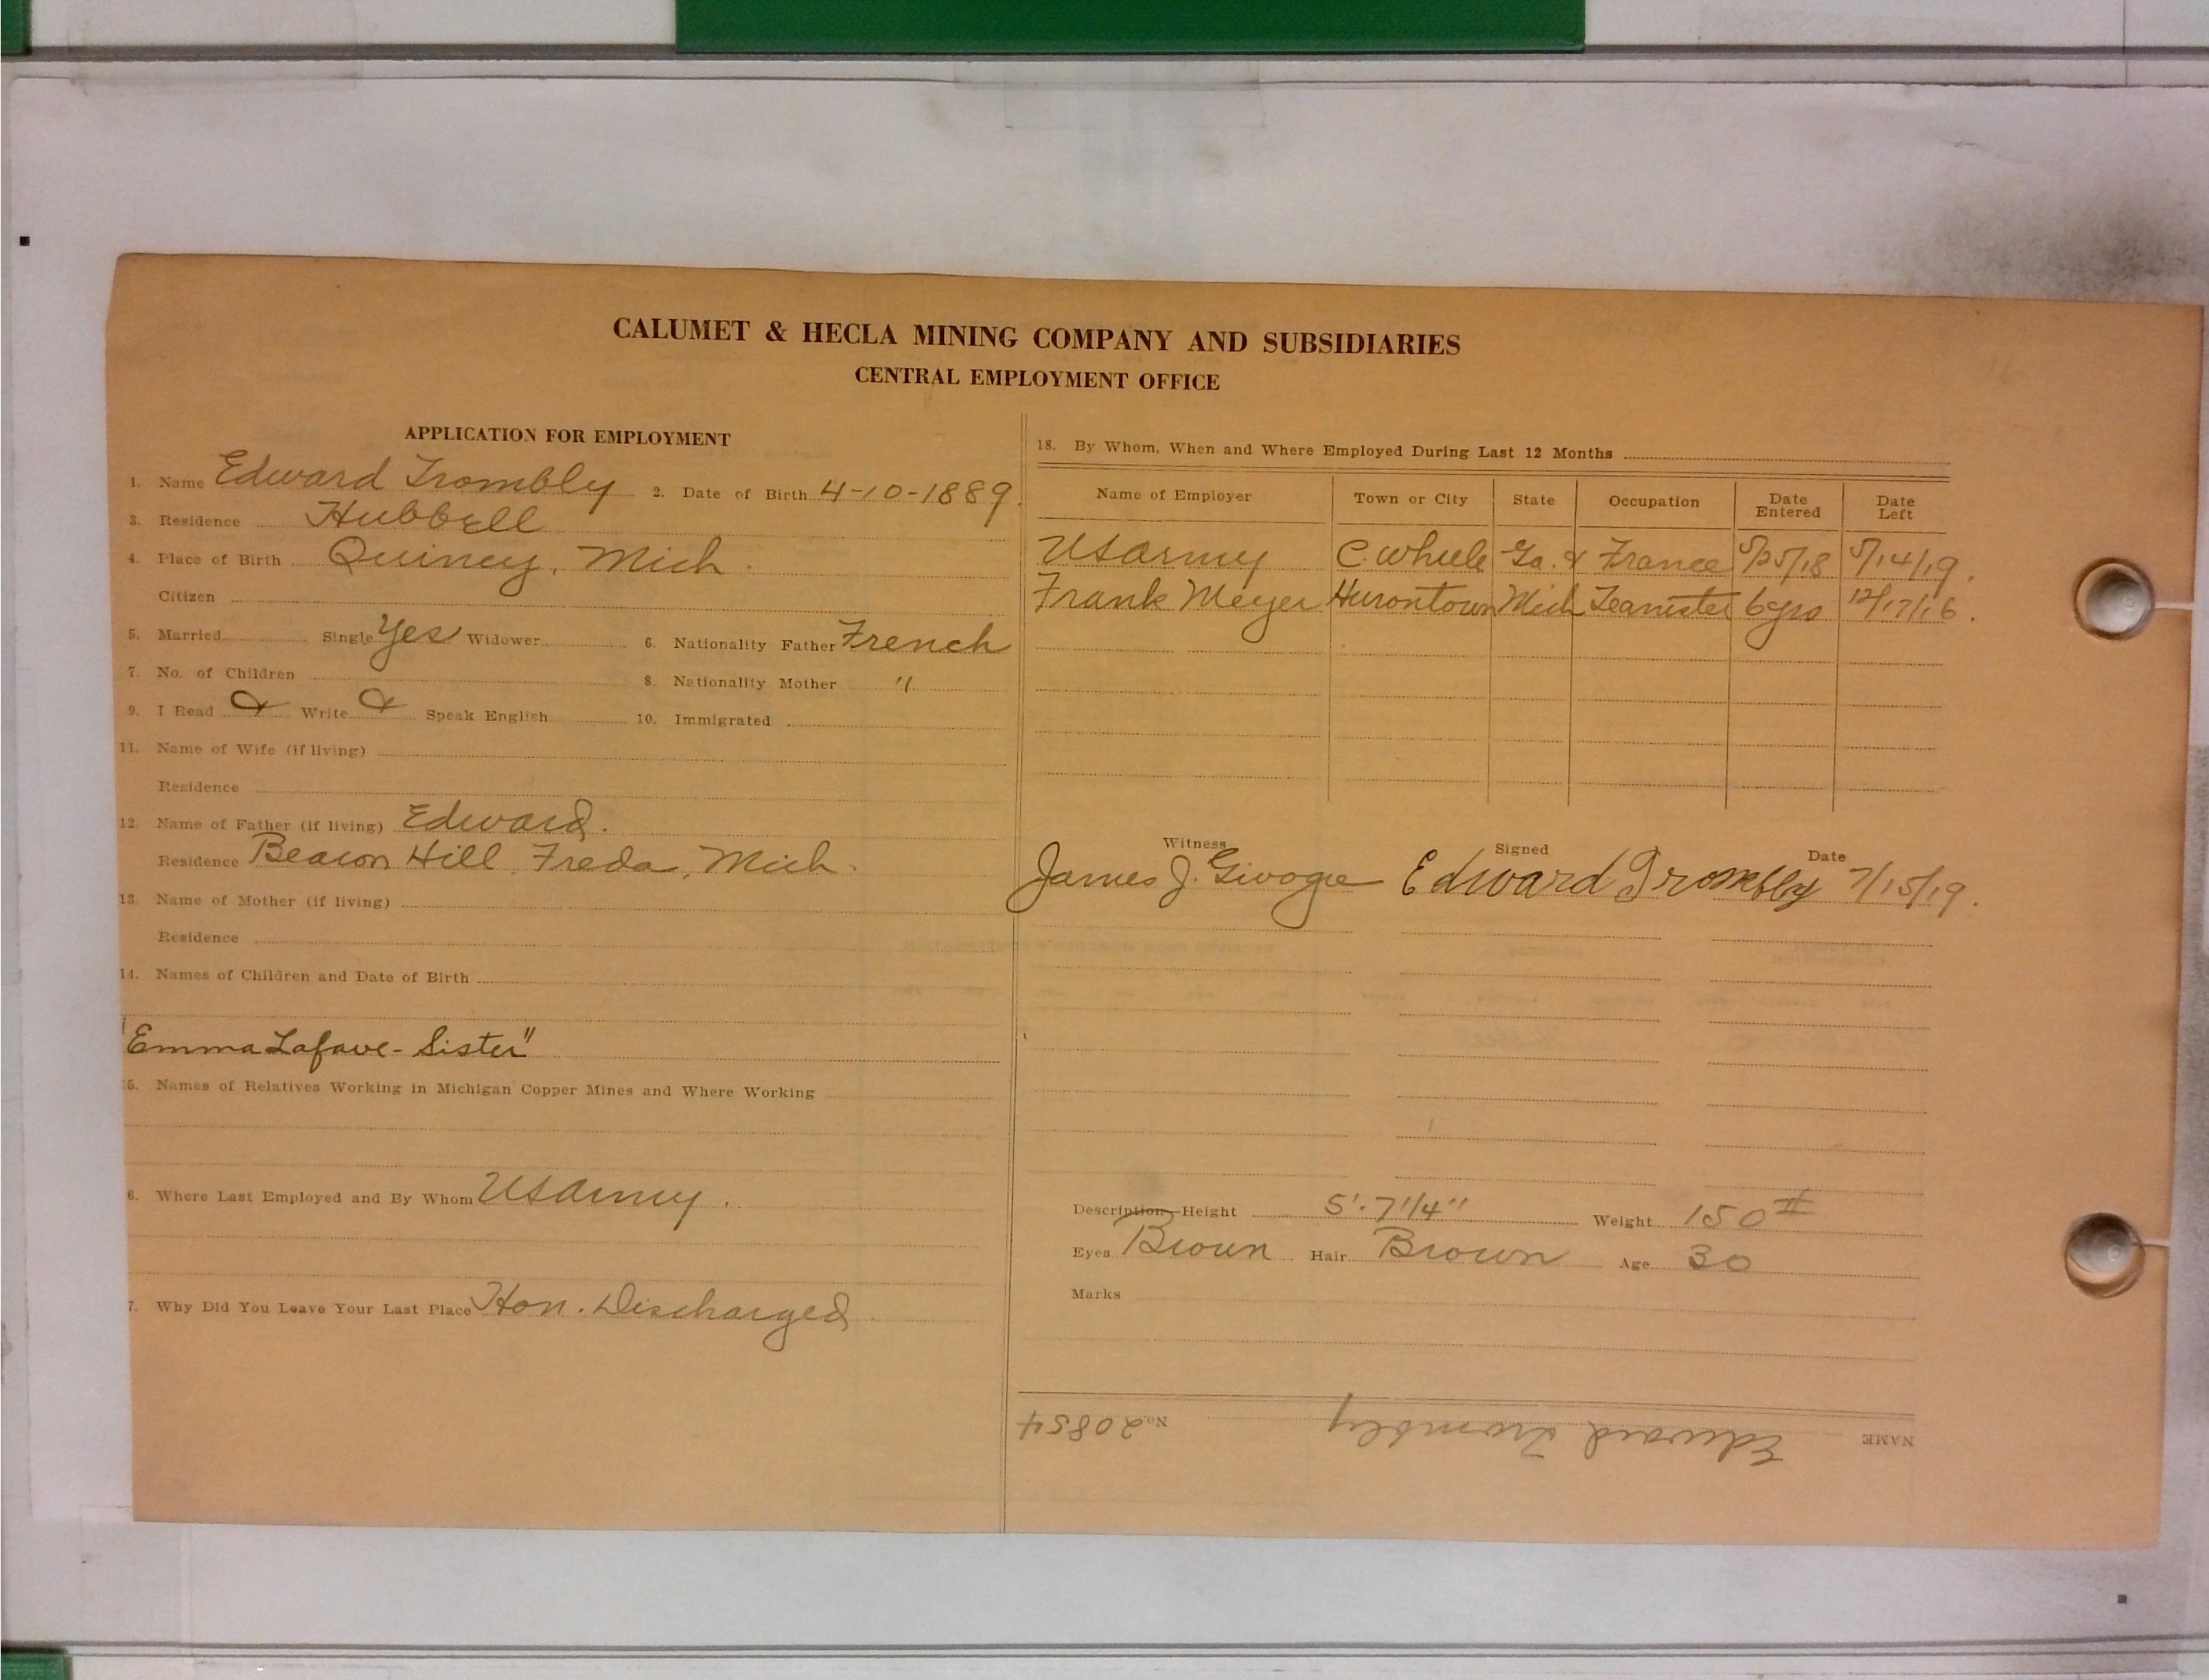 CALUMET & HECLA MINING COMPANY AND SUBSIDIARIES
CENTRAL EMPLOYMENT OFFICE
APPLICATION FOR EMPLOYMENT
1. Name Edward Trombly 2. Date of Birth 4-10-1889.
3. Residence Hubbell
4. Place of Birth Quincy, Mich.
Citizen
5. Married Single Yes Widower 6. Nationality Father French
7. No. of Children 8. Nationality Mother "
9. I Read Write Speak English 10. Immigrated
11. Name of Wife (if living)
Residence
12. Name of Father (if living) Edward.
Residence Beacon Hill, Freda, Mich.
13. Name of Mother (if living)
Residence
14. Names of Children and Date of Birth
"Emma Lafave - Sister"
15. Names of Relatives Working in Michigan Copper Mines and Where Working
6. Where Last Employed and By Whom US Army.
7. Why Did You Leave Your Last Place Hon. Discharged
18. By Whom, When and Where Employed During Last 12 Months
Name of Employer Town or City State Occupation Date Entered Date Left
US Army C. Wheele Ga. & France 5/25/18 5/14/19.
Frank Meyer Hurontown Mich Teamster 6 yrs 12/17/16.
Witness Signed Date
James J. Edward Trombly 7/15/19.
Description Height 5'.7 1/4" Weight 150 #
Eyes Brown Hair Brown Age 30
Marks
NAME Edward Trombly No. 20854